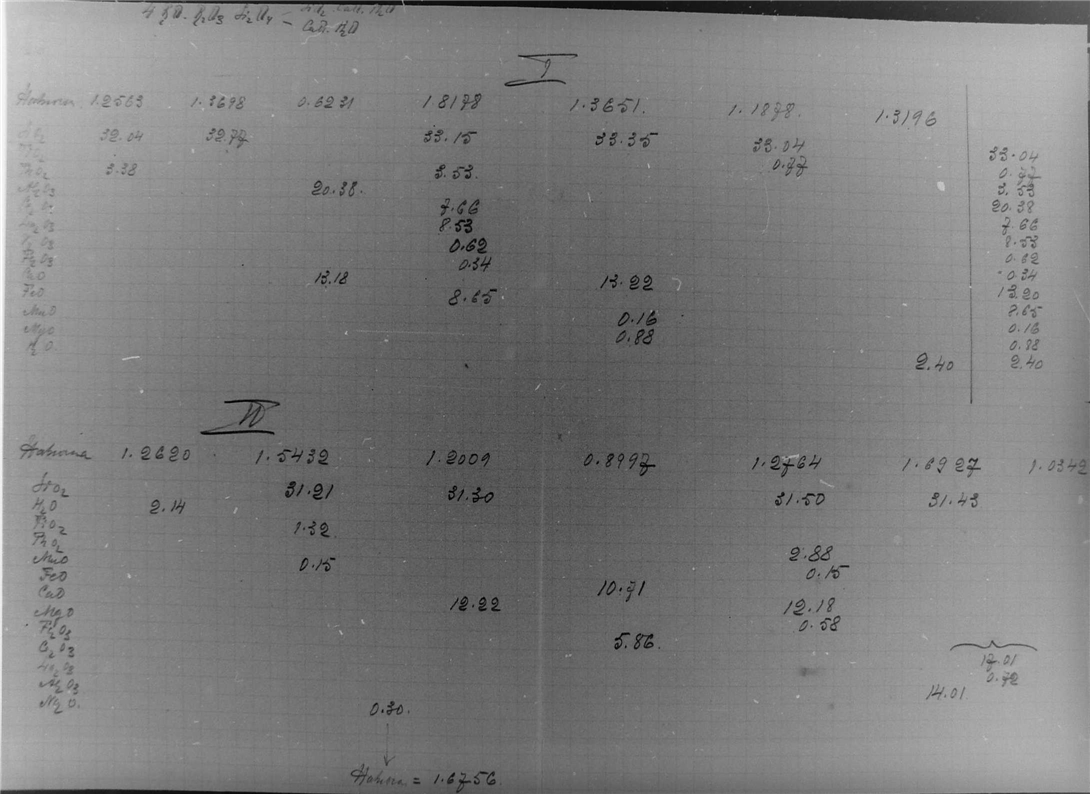 I
1.2563 1.3698 0.6231 1.8178 1.3651. 1.1878. 1.3196
32.04 32.77 33.15 33.35 33.04 33.04
0.77 0.77
3.38 3.53. 3.53
Al2O3 20.38. 20.38
7.66 7.66
8.53 8.53
0.62 0.62
0.34 0.34
CaO 13.18 13.22 13.20
FeO 8.65 8.65
MnO 0.16 0.16
MgO 0.88 0.88
2.40 2.40
1.2620 1.5432 1.2009 0.8997 1.2764 1.6927 1.0342
SiO2 31.21 31.30 31.50 31.43
H2O 2.14
TiO2 1.32
2.88
MnO 0.15 0.15
FeO 10.71
CaO 12.22 12.18
MgO 0.58
5.86.
17.01
0.72
Al2O3 14.01
0.30.
= 1.6756